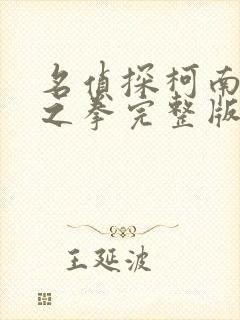 名偵探柯南
之拳完整版
王延波